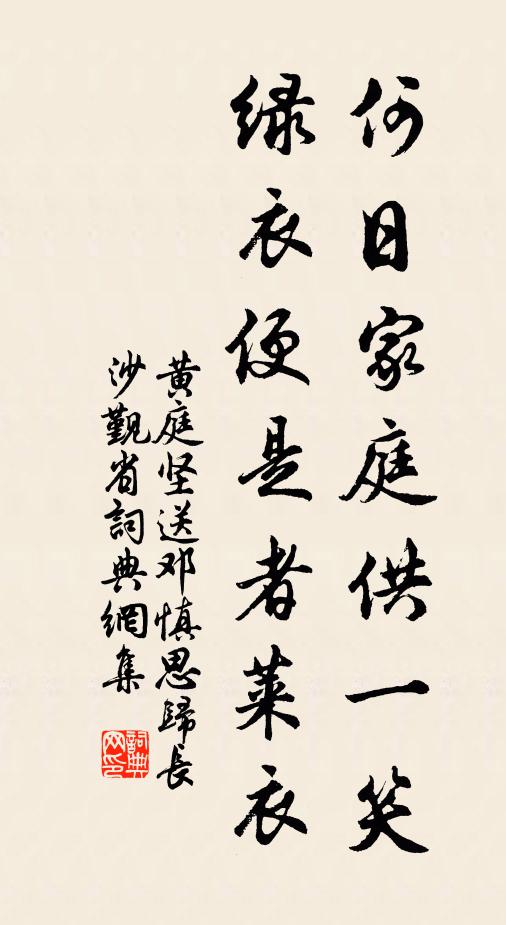 何日家庭供一笑
绿衣便是者莱衣
黄庭坚送邓慎思歸长
沙觐省詞典網集
詞典网印